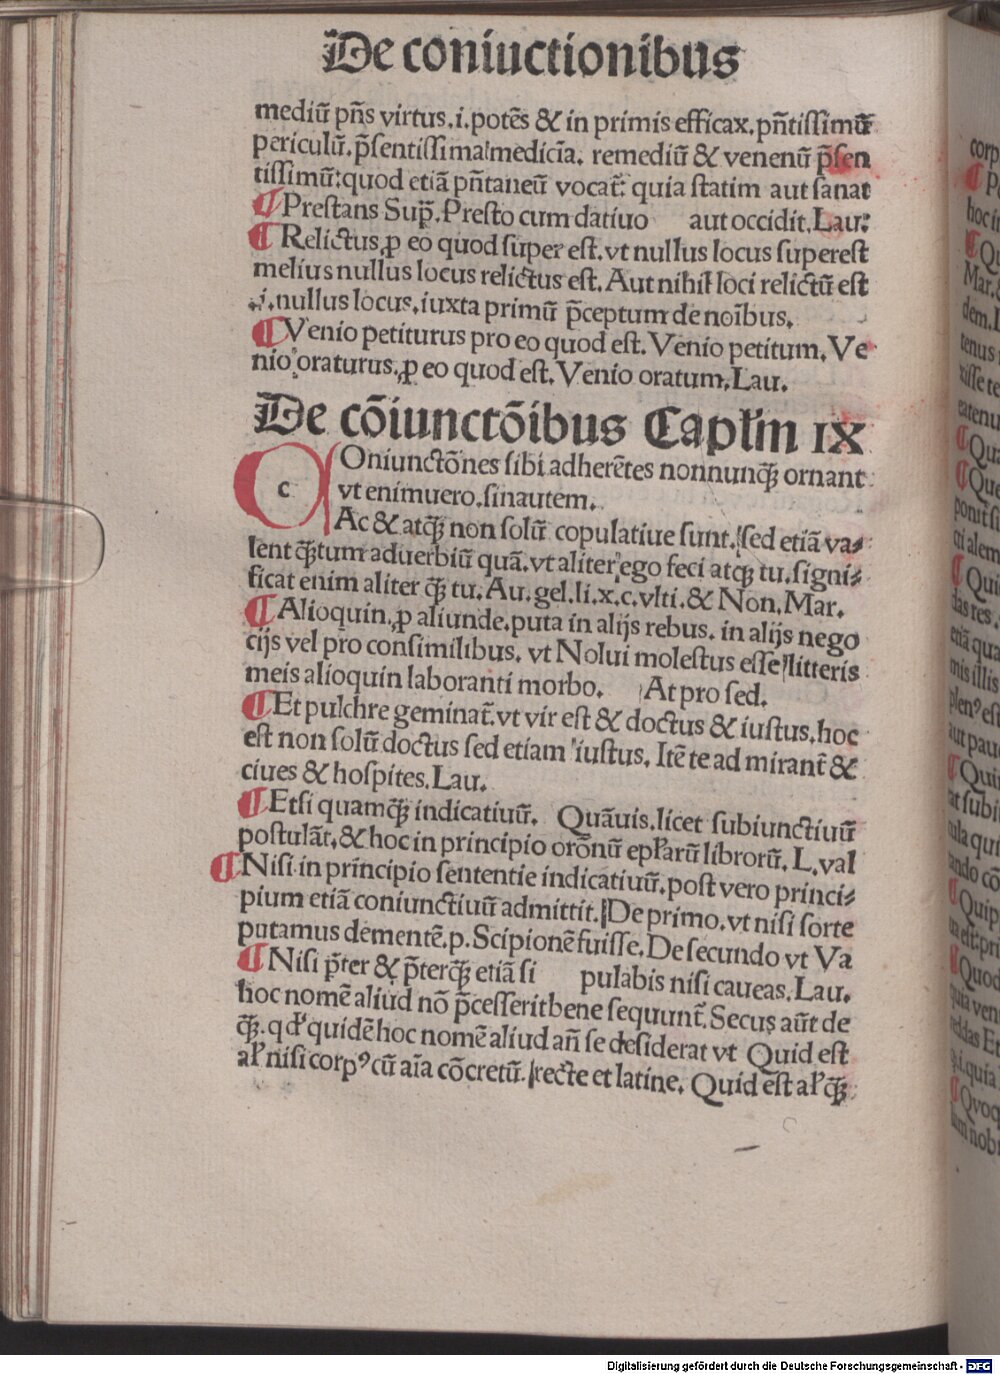 De coniuctionibus
mediū pn̄s virtus.i.potēs & in primis efficax.pn̄tissimū
periculū.p̄sentissima medicīa. remediū & venenū p̄sen
tissimū:quod etiā pn̄taneū vocat̄: quia statim aut sanat
¶Prestans Sup̄.Presto cum datiuo aut occidit.Lau:
¶Relictus.ꝓ eo quod super est.vt nullus locus superest
melius nullus locus relictus est.Aut nihil loci relictū est
.i.nullus locus.iuxta primū p̄ceptum de noībus.
¶Venio petiturus pro eo quod est.Venio petitum.Ve
nio oraturus.ꝓ eo quod est.Venio oratum.Lau.
De cōiunctōibus Capl̄m IX
c
COniunctōnes sibi adherētes nonnunꝙ̄ ornant
vt enimuero.sinautem.
Ac & atꝙ̄ non solū copulatiue sunt.sed etiā va⸗
lent ꝙ̄tum aduerbiū quā.vt aliter ego feci atꝙ tu.signi⸗
ficat enim aliter ꝙ̄ tu.Au.gel.li.x.c.vlti.& Non.Mar.
¶Alioquin.ꝓ aliunde.puta in alijs rebus.in alijs nego
cijs vel pro consimilibus.vt Nolui molestus esse litteris
meis alioquin laboranti morbo. At pro sed.
¶Et pulchre geminat̄.vt vir est & doctus & iustus.hoc
est non solū doctus sed etiam iustus.Itē te ad mirant̄ &
ciues & hospites.Lau.
¶Etsi quamꝙ̄ indicatiuū. Quāuis.licet subiunctiuū
postulāt.& hoc in principio orōnū epl̄arū librorū.L.val
¶Nisi in principio sententie indicatiuū.post vero princi⸗
pium etiā coniunctiuū admittit.De primo.vt nisi forte
putamus dementē.p.Scipionē fuisse.De secundo vt Va
¶Nisi p̄ter & p̄terꝙ̄ etiā si pulabis nisi caueas.Lau.
hoc nomē aliud nō p̄cesserit bene sequunt̄.Secus aūt de
ꝙ̄.qd̓ quidē hoc nomē aliud an̄ se desiderat vt Quid est
al̓ nisi corpꝰ cū aīa cōcretū.recte et latine.Quid est al̓ ꝙ̄
Digitalisierung gefördert durch die Deutsche Forschungsgemeinschaft - DFG